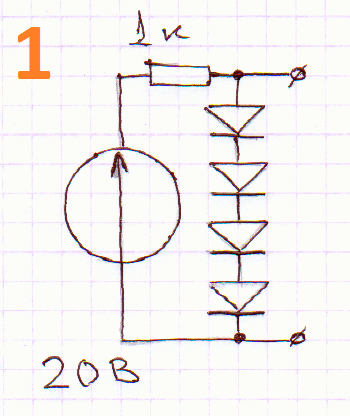 1
1 к
20В